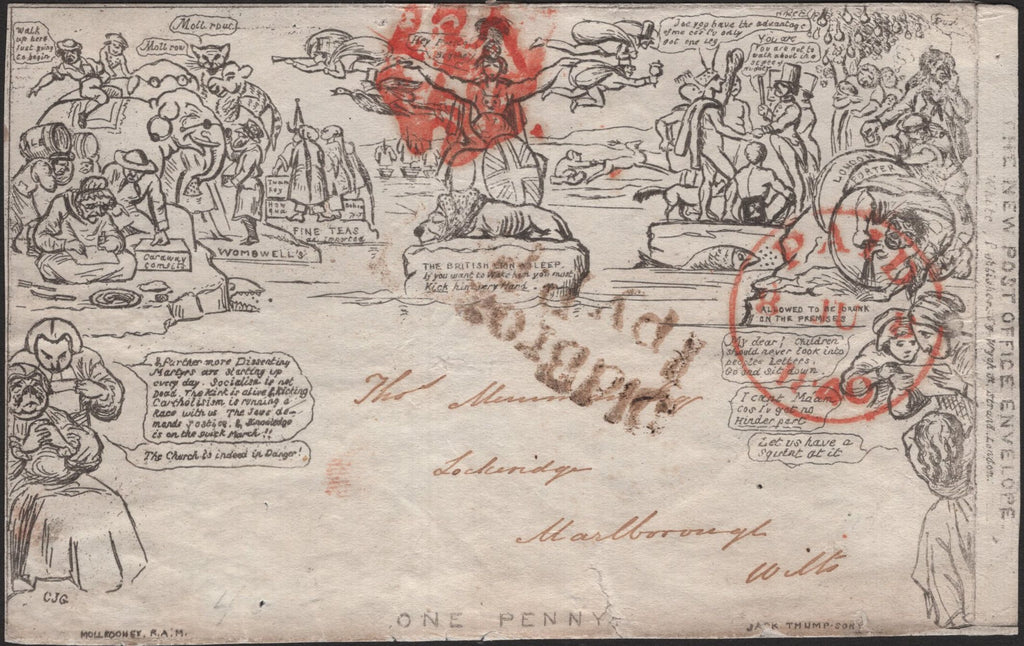 Walk
up here
Just going
to begin
Moll row
Moll row
Hey
Joe you have the advantage
of me cos I've only
got one leg
You are
You are not to
walk about in the
ALE
Caraway
Comfits
WOMBWELL'S
How
qua
FINE TEAS
as imported
THE BRITISH LION ASLEEP.
If you want to Wake him you must
Kick him very Hard
LONDON
PORTER
ALLOWED TO BE DRUNK
ON THE PREMISES
PAID
1840
My dear! Children
should never look into
Letters.
Go and Sit down
I cant Maam
cos I've got no
Hinder part
Let us have a
Squint at it
& further more Dissenting
Martyrs are starting up
every day. Socialism is not
Dead. The Kirk is alive & Kicking
Cartholisism is running a
Race with us The Jews de-
mands Jostice, & Knowledge
is on the quick March!!
The Church is indeed in Danger!
Thos
Lockeridge
Marlborough
Wilts
CJG
ONE PENNY.
MOLLROONEY, R.A.M.
JACK THUMP-SON
THE NEW POST OFFICE ENVELOPE
Strand London.